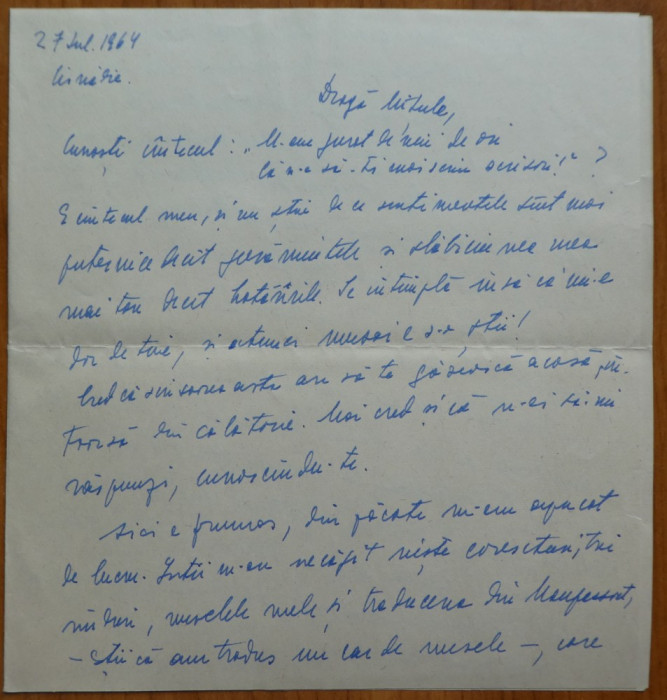 27 Iul. 1964
Cisnădie.
Dragă Mitule,
Cunoști cîntecul: „M-am jurat de mii de ori
Că n-o să-ți mai scriu scrisori!" ?
E cîntecul meu, și nu știu de ce sentimentele sînt mai
puternice decît jurămintele și slăbiciunea mea
mai tare decît hotărîrile. Se întîmplă însă că mi-e
dor de tine, și atunci musai e s-o știi!
Cred că scrisoarea asta are să te găsească acasă, în-
toarsă din călătorie. Mai cred și că n-ai să-mi
răspunzi, cunoscîndu-te.
Aici e frumos, din păcate m-am apucat
de lucru. Întîi m-au necăjit niște corecturi,
nuvelele mele și traducerea din Maupassant,
– Știi că am tradus un car de nuvele –, care